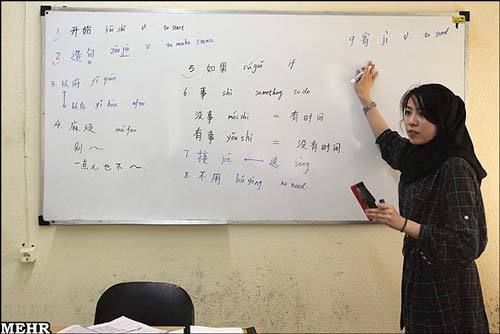 1. 开始 kāi shǐ v to start
2. 造句 zào jù v to make
3 以前 yǐ qián
以后 yǐ hòu after
4. 麻烦 má fan
别~
一点儿也不~
5. 如果 rúguǒ if
6 事 shì something to do
没事 méishì = 有时间
有事 yǒushì = 没有时间
7 接 jiē ⟷ 送 sòng
8 不用 búyòng no need
9 寄 jì v to send
MEHR